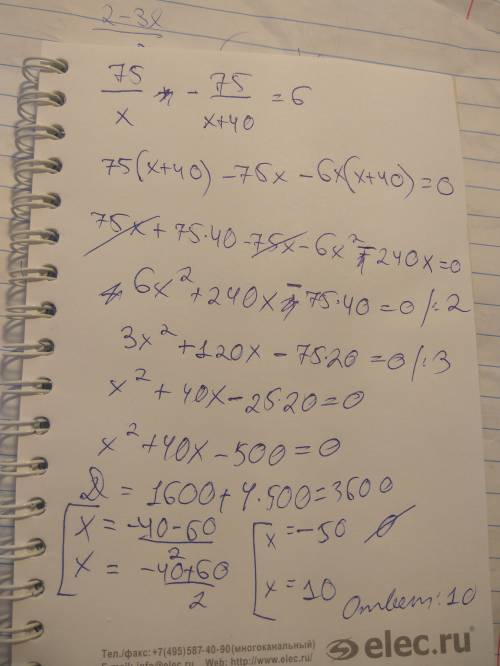 2-3x
75/x - 75/(x+40) = 6
75(x+40) - 75x - 6x(x+40) = 0
75x + 75·40 - 75x - 6x² - 240x = 0
6x² + 240x - 75·40 = 0 /:2
3x² + 120x - 75·20 = 0 /:3
x² + 40x - 25·20 = 0
x² + 40x - 500 = 0
D = 1600 + 4·500 = 3600
[x = (-40-60)/2 [x = -50 ∅
[x = (-40+60)/2 [x = 10
Ответ: 10
Тел./факс: +7(495)587-40-90(многоканальный)
E-mail: info@elec.ru Web: http://www.elec.ru/
elec.ru